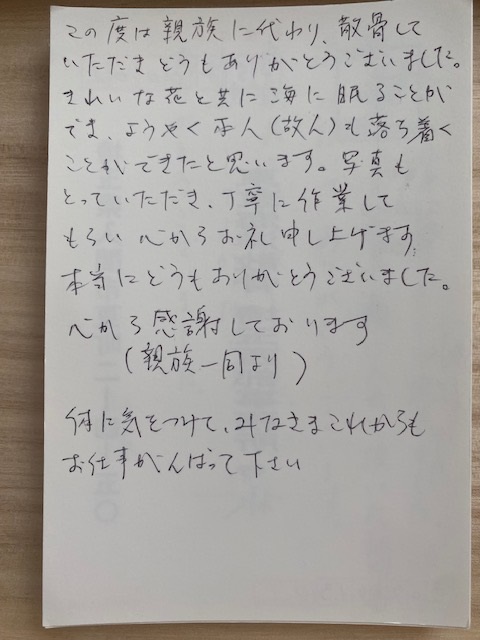 この度は親族に代わり、散骨して
いただきどうもありがとうございました。
きれいな花と共に海に眠ることが
でき、ようやく本人(故人)も落ち着く
ことができたと思います。写真も
とっていただき、丁寧に作業して
もらい心からお礼申し上げます
本当にどうもありがとうございました。
心から感謝しております
(親族一同より)
体に気をつけて、みなさまこれからも
お仕事がんばって下さい